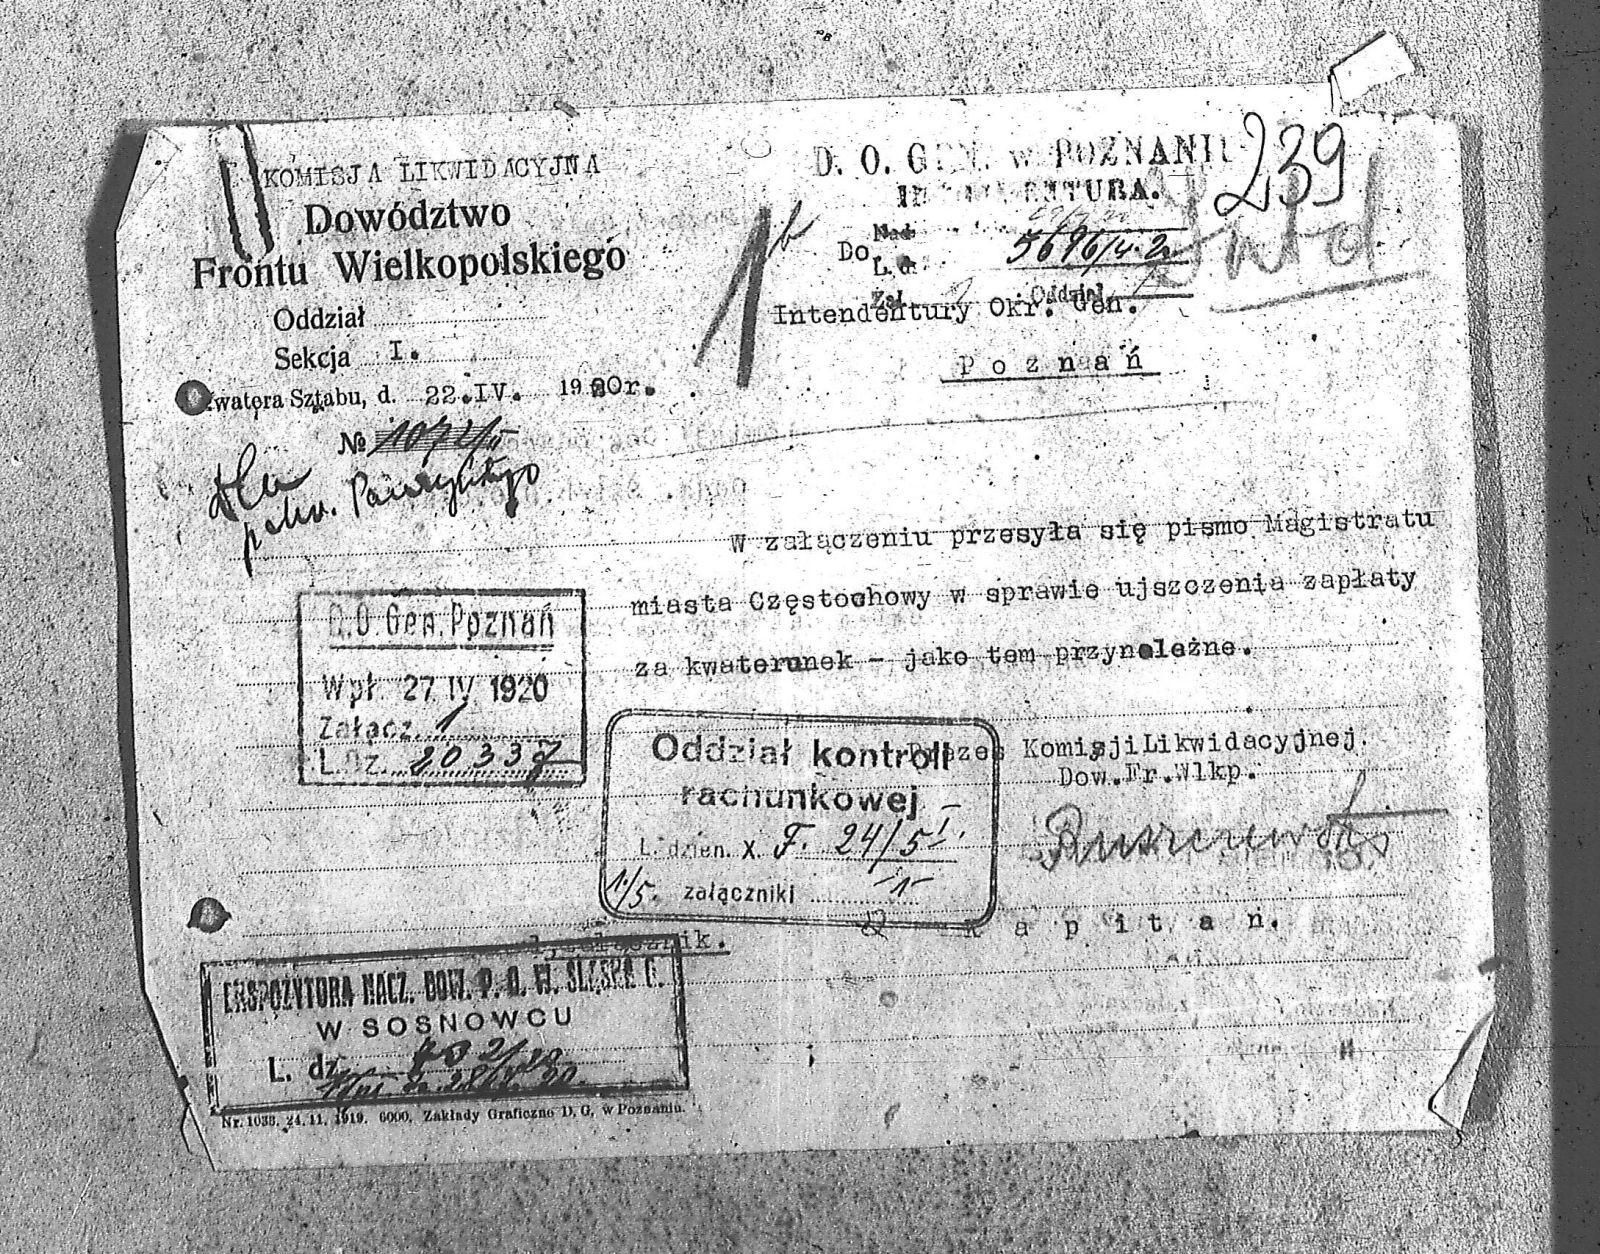 KOMISJA LIKWIDACYJNA
Dowództwo
Frontu Wielkopolskiego
Oddział
Sekcja I.
Kwatera Sztabu, d. 22.IV. 1920r.
№ 1072/II
dla
D. O. GEN. w POZNANIU
INTENDENTURA.
239
Nad.
Do
L. d. 5696/4.2
Zał. Oddział
Intendentury Okr. Gen.
Poznań
W załączeniu przesyła się pismo Magistratu
miasta Częstochowy w sprawie ujszczenia zapłaty
za kwaterunek – jako tem przynależne.
D.O.Gen.Poznań
Wpł. 27 IV 1920
Załącz. 1
L.Dz. 20337
Oddział kontroli
rachunkowej
L. dzien. X. F. 24/5
1/5. załączniki -1-
Prezes Komisji Likwidacyjnej.
Dow.Fr.Wlkp.
Kapitan.
1 załącznik.
EKSPOZYTURA NACZ. DOW. P. O. W. ŚLĄSKA G.
W SOSNOWCU
L. dz.
Nr. 1038. 24. 11. 1919. 6000. Zakłady Graficzne D. G. w Poznaniu.